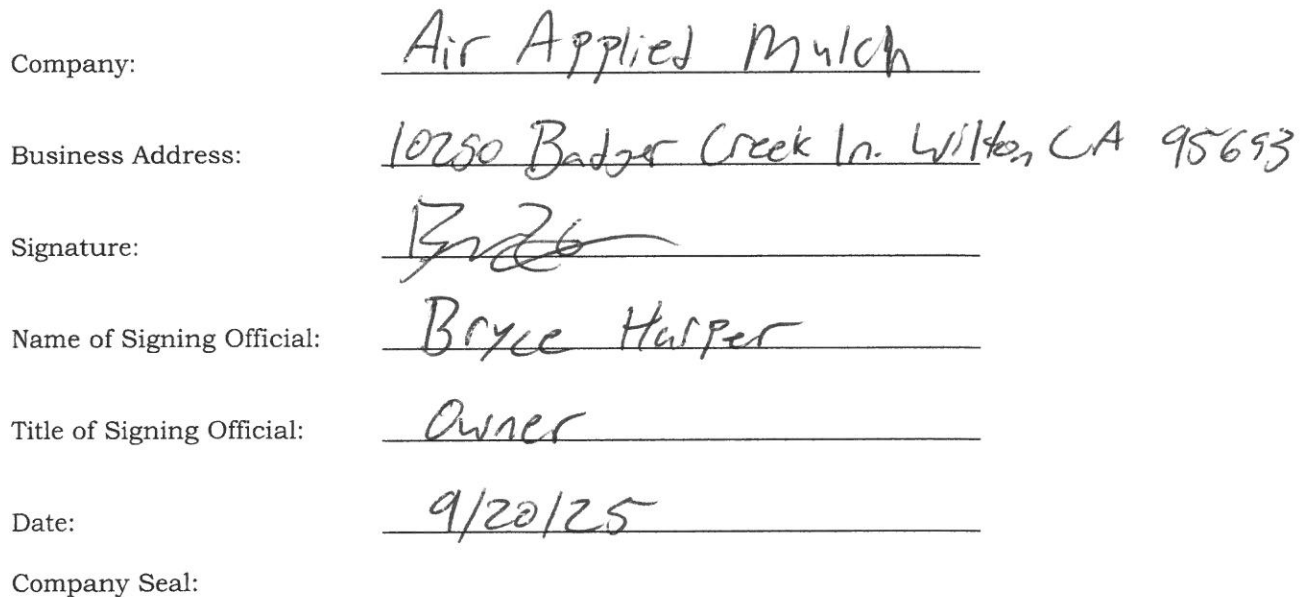 Company: Air Applied Mulch
Business Address: 10250 Badger Creek ln. Wilton, CA 95693
Signature:
Name of Signing Official: Bryce Harper
Title of Signing Official: Owner
Date: 9/20/25
Company Seal: